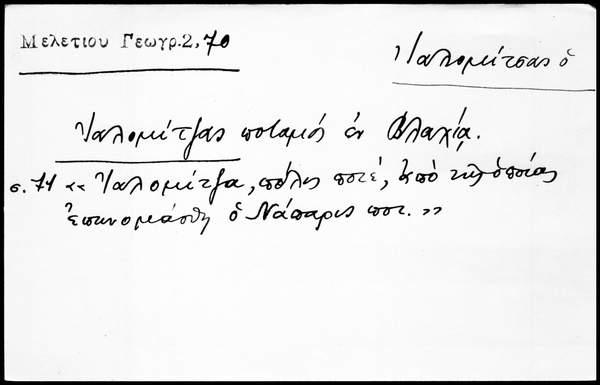 Μελετίου Γεωγρ.2,70
Ἰαλομίτσας ὁ
Ἰαλομίτζας ποταμός ἐν Βλαχίᾳ.
σ. 71 « Ἰαλομίτζα, πόλις ποτέ, ἀπό τῆς ὁποίας
ἐπωνομάσθη ὁ Νάπαρις ποτ. »